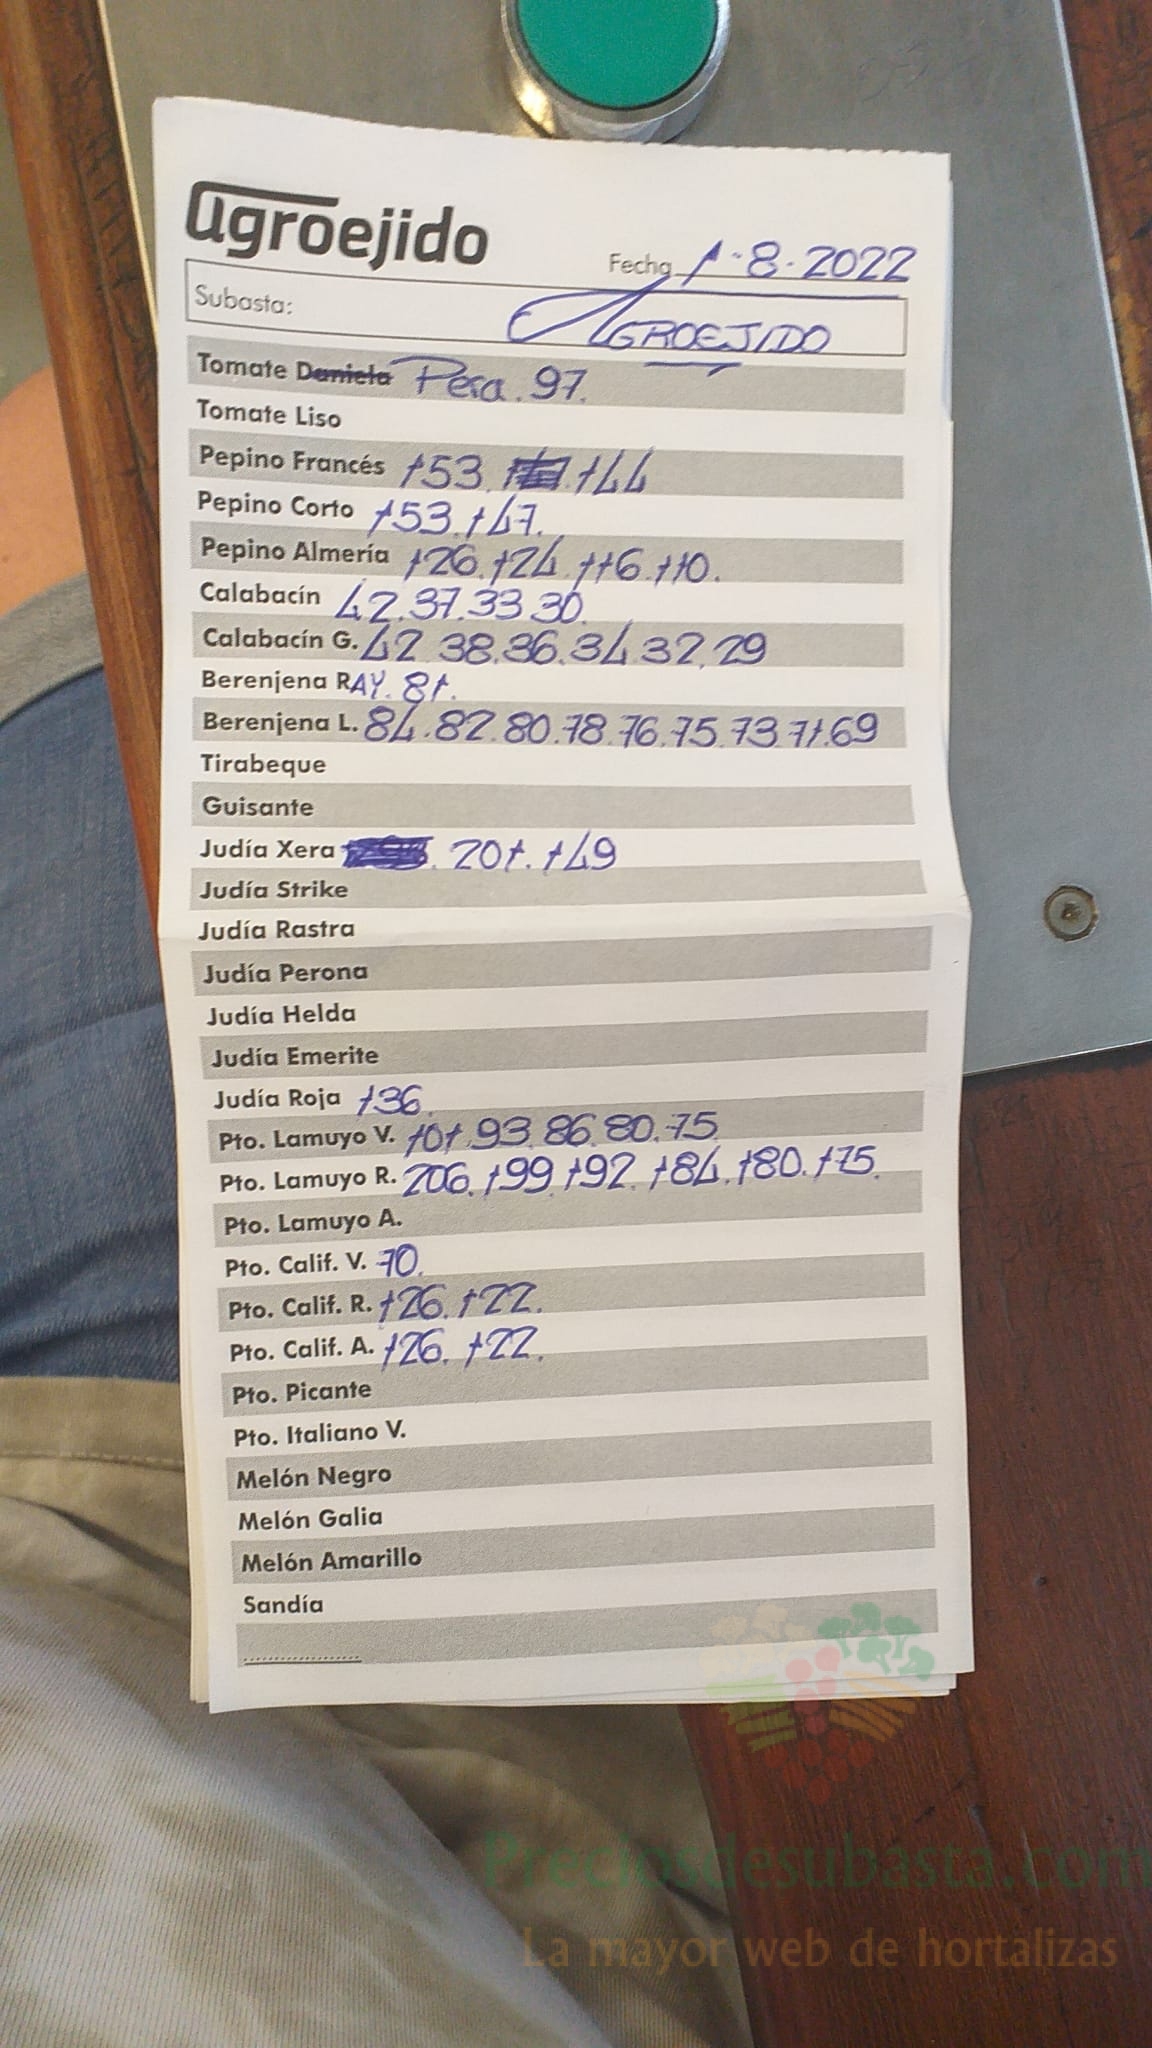 agroejido
Fecha 1-8-2022
Subasta: AGROEJIDO
Tomate Daniela Pera. 97.
Tomate Liso
Pepino Francés 153. 144
Pepino Corto 153. 147.
Pepino Almería 126. 124. 116. 110.
Calabacín 42. 37. 33 30.
Calabacín G. 42 38. 36. 34. 32. 29
Berenjena RAY. 81.
Berenjena L. 84. 82. 80. 78. 76. 75. 73. 71. 69
Tirabeque
Guisante
Judía Xera . 201. 149
Judía Strike
Judía Rastra
Judía Perona
Judía Helda
Judía Emerite
Judía Roja 136.
Pto. Lamuyo V. 101. 93. 86. 80. 75.
Pto. Lamuyo R. 206. 199. 192. 184. 180. 175.
Pto. Lamuyo A.
Pto. Calif. V. 70.
Pto. Calif. R. 126. 122.
Pto. Calif. A. 126. 122.
Pto. Picante
Pto. Italiano V.
Melón Negro
Melón Galia
Melón Amarillo
Sandía
Preciosdesubasta.com
La mayor web de hortalizas